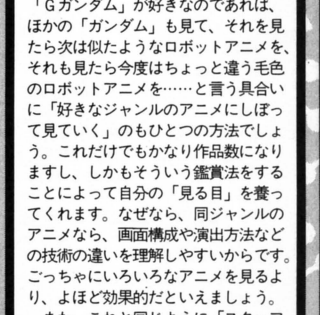 「Ｇガンダム」が好きなのであれば、
ほかの「ガンダム」も見て、それを見
たら次は似たようなロボットアニメを、
それも見たら今度はちょっと違う毛色
のロボットアニメを……と言う具合い
に「好きなジャンルのアニメにしぼっ
て見ていく」のもひとつの方法でしょ
う。これだけでもかなり作品数になり
ますし、しかもそういう鑑賞法をする
ことによって自分の「見る目」を養っ
てくれます。なぜなら、同ジャンルの
アニメなら、画面構成や演出方法など
の技術の違いを理解しやすいからです。
ごっちゃにいろいろなアニメを見るよ
り、よほど効果的だといえましょう。